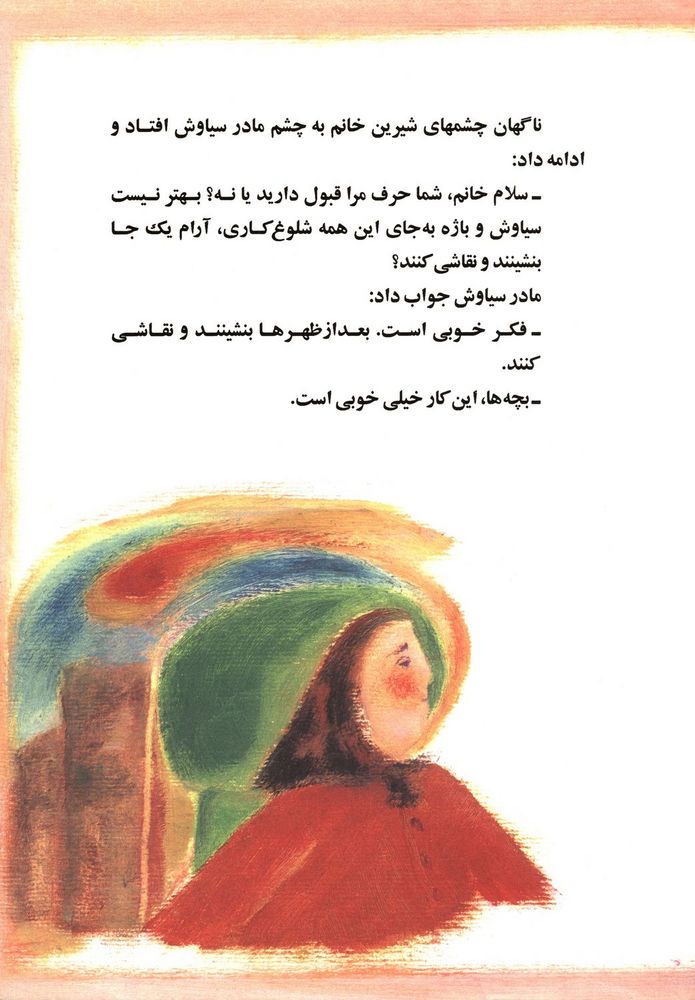 ناگهان چشمهای شیرین خانم به چشم مادر سیاوش افتاد و
ادامه داد:
ـ سلام خانم، شما حرف مرا قبول دارید یا نه؟ بهتر نیست
سیاوش و باژه به‌جای این همه شلوغ‌کاری، آرام یک جا
بنشینند و نقاشی کنند؟
مادر سیاوش جواب داد:
ـ فکر خوبی است. بعدازظهرها بنشینند و نقاشی
کنند.
ـ بچه‌ها، این کار خیلی خوبی است.